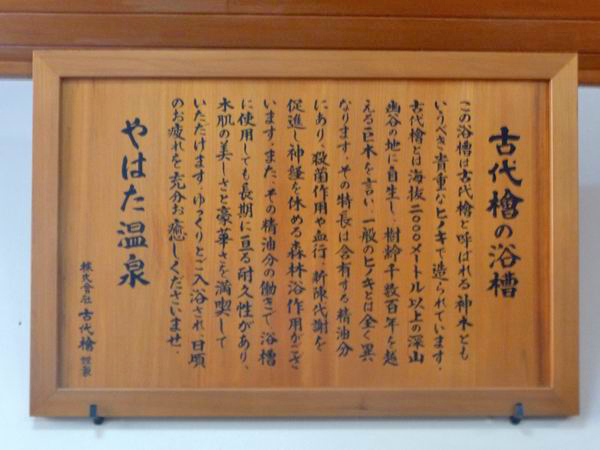 古代檜の浴槽
この浴槽は古代檜と呼ばれる神木とも
いうべき貴重なヒノキで造られています。
古代檜とは海抜二〇〇〇メートル以上の深山
幽谷の地に自生し、樹齢千数百年を越
える巨木を言い、一般のヒノキとは全く異
なります。その特長は含有する精油分
にあり、殺菌作用や血行、新陳代謝を
促進し神経を休める森林浴作用がござ
います。また、その精油分の働きで、浴槽
に使用しても長期に亘る耐久性があり、
木肌の美しさと豪華さを満喫して
いただけます。ゆっくりとご入浴され、日頃
のお疲れを充分お癒しくださいませ。
やはた温泉
株式会社 古代檜 謹製